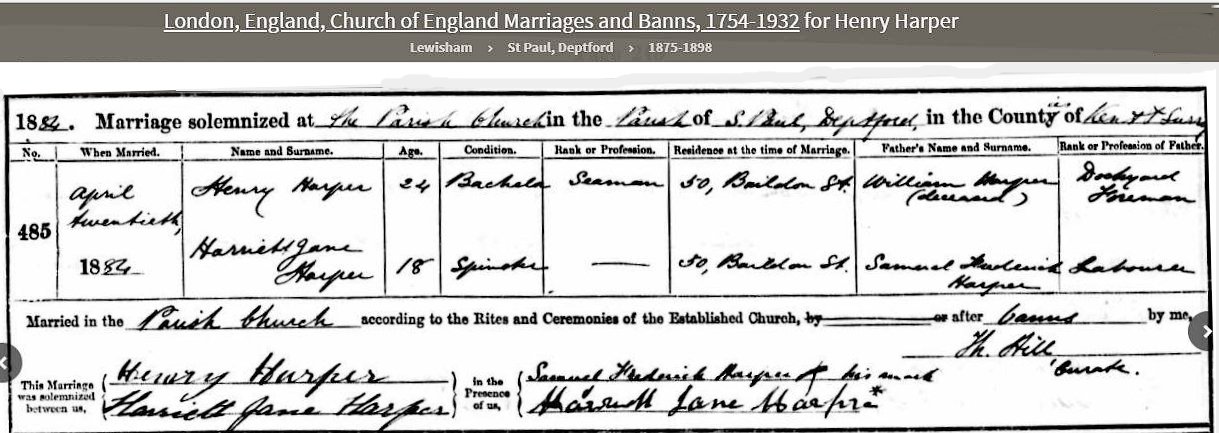 London, England, Church of England Marriages and Banns, 1754-1932 for Henry Harper
Lewisham > St Paul, Deptford > 1875-1898
1884. Marriage solemnized at the Parish Church in the Parish of S. Paul, Deptford, in the County ies of Kent & Surry
No. When Married. Name and Surname. Age. Condition. Rank or Profession. Residence at the time of Marriage. Father's Name and Surname. Rank or Profession of Father.
485
April twentieth, 1884
Henry Harper 24 Bachelor Seaman 50, Baildon St. William Harper (deceased) Dockyard Foreman
Harriett Jane Harper 18 Spinster — 50, Baildon St. Samuel Frederick Harper Labourer
Married in the Parish Church according to the Rites and Ceremonies of the Established Church, by or after banns by me,
Th. Hill, Curate.
This Marriage was solemnized between us,
Henry Harper
Harriett Jane Harper
in the Presence of us,
Samuel Frederick Harper his mark
Jane Harper*